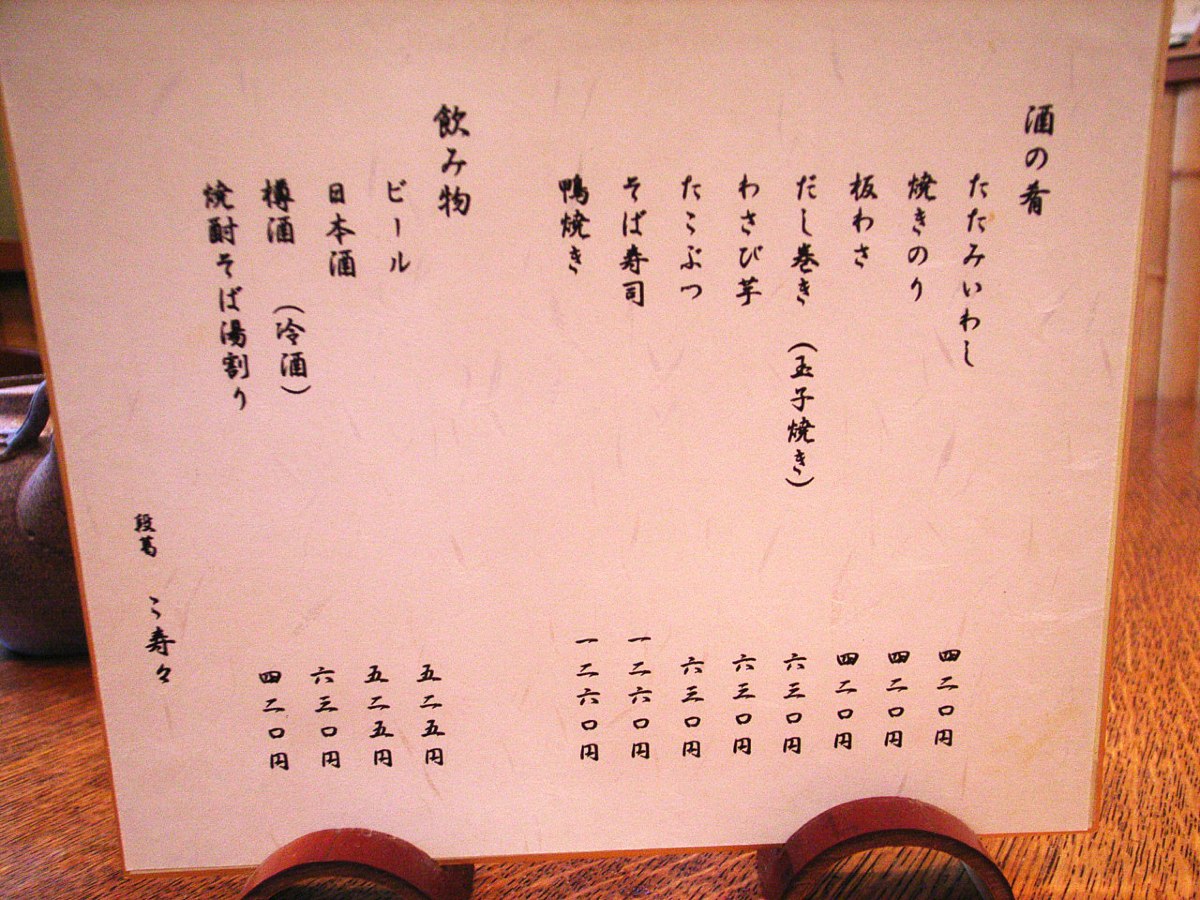 酒の肴
たたみいわし 四二〇円
焼きのり 四二〇円
板わさ 四二〇円
だし巻き（玉子焼き） 六三〇円
わさび芋 六三〇円
たこぶつ 六三〇円
そば寿司 一二六〇円
鴨焼き 一二六〇円
飲み物
ビール 五二五円
日本酒 五二五円
樽酒（冷酒） 六三〇円
焼酎そば湯割り 四二〇円
段葛 こ寿々